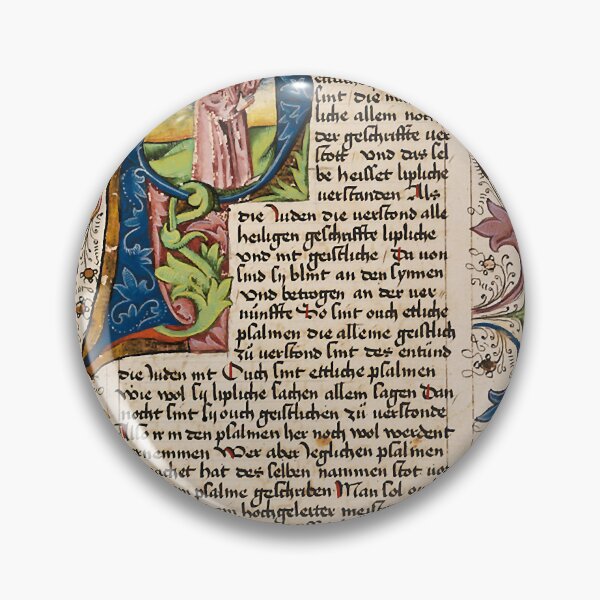 sint die
liche allem noch
der geschrifte ver
stott und das sel
be heisset lipliche
verstanden Als
die Juden die verstond alle
heiligen geschrifte lipliche
und mit geistliche Da von
sind sy blint an den synnen
Und betrogen an der ver
nünffte So sint ouch etliche
psalmen die alleine geistlich
zü verstond sint des entünd
die Juden mit Ouch sint ettliche psalmen
wie wol sy lipliche sachen allem sagen Dan
nocht sint sy ouch geistlichen zü verstonde
Also ir in den psalmen her noch wol werdent
Wer aber yeglichen psalmen
hat des selben nammen stot vor
psalme geschriben Man sol
hochgeleiter meist